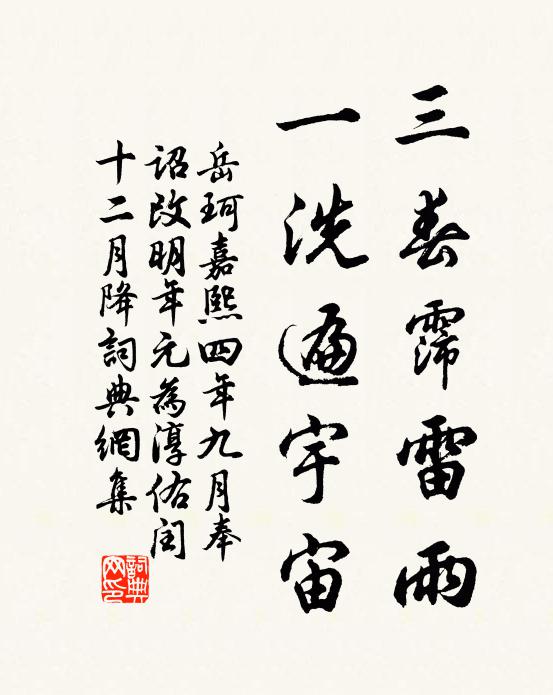 三春霈雷雨
一洗遍宇宙
岳珂嘉熙四年九月奉
詔改明年元為淳佑閏
十二月降詞典網集
詞典
网印